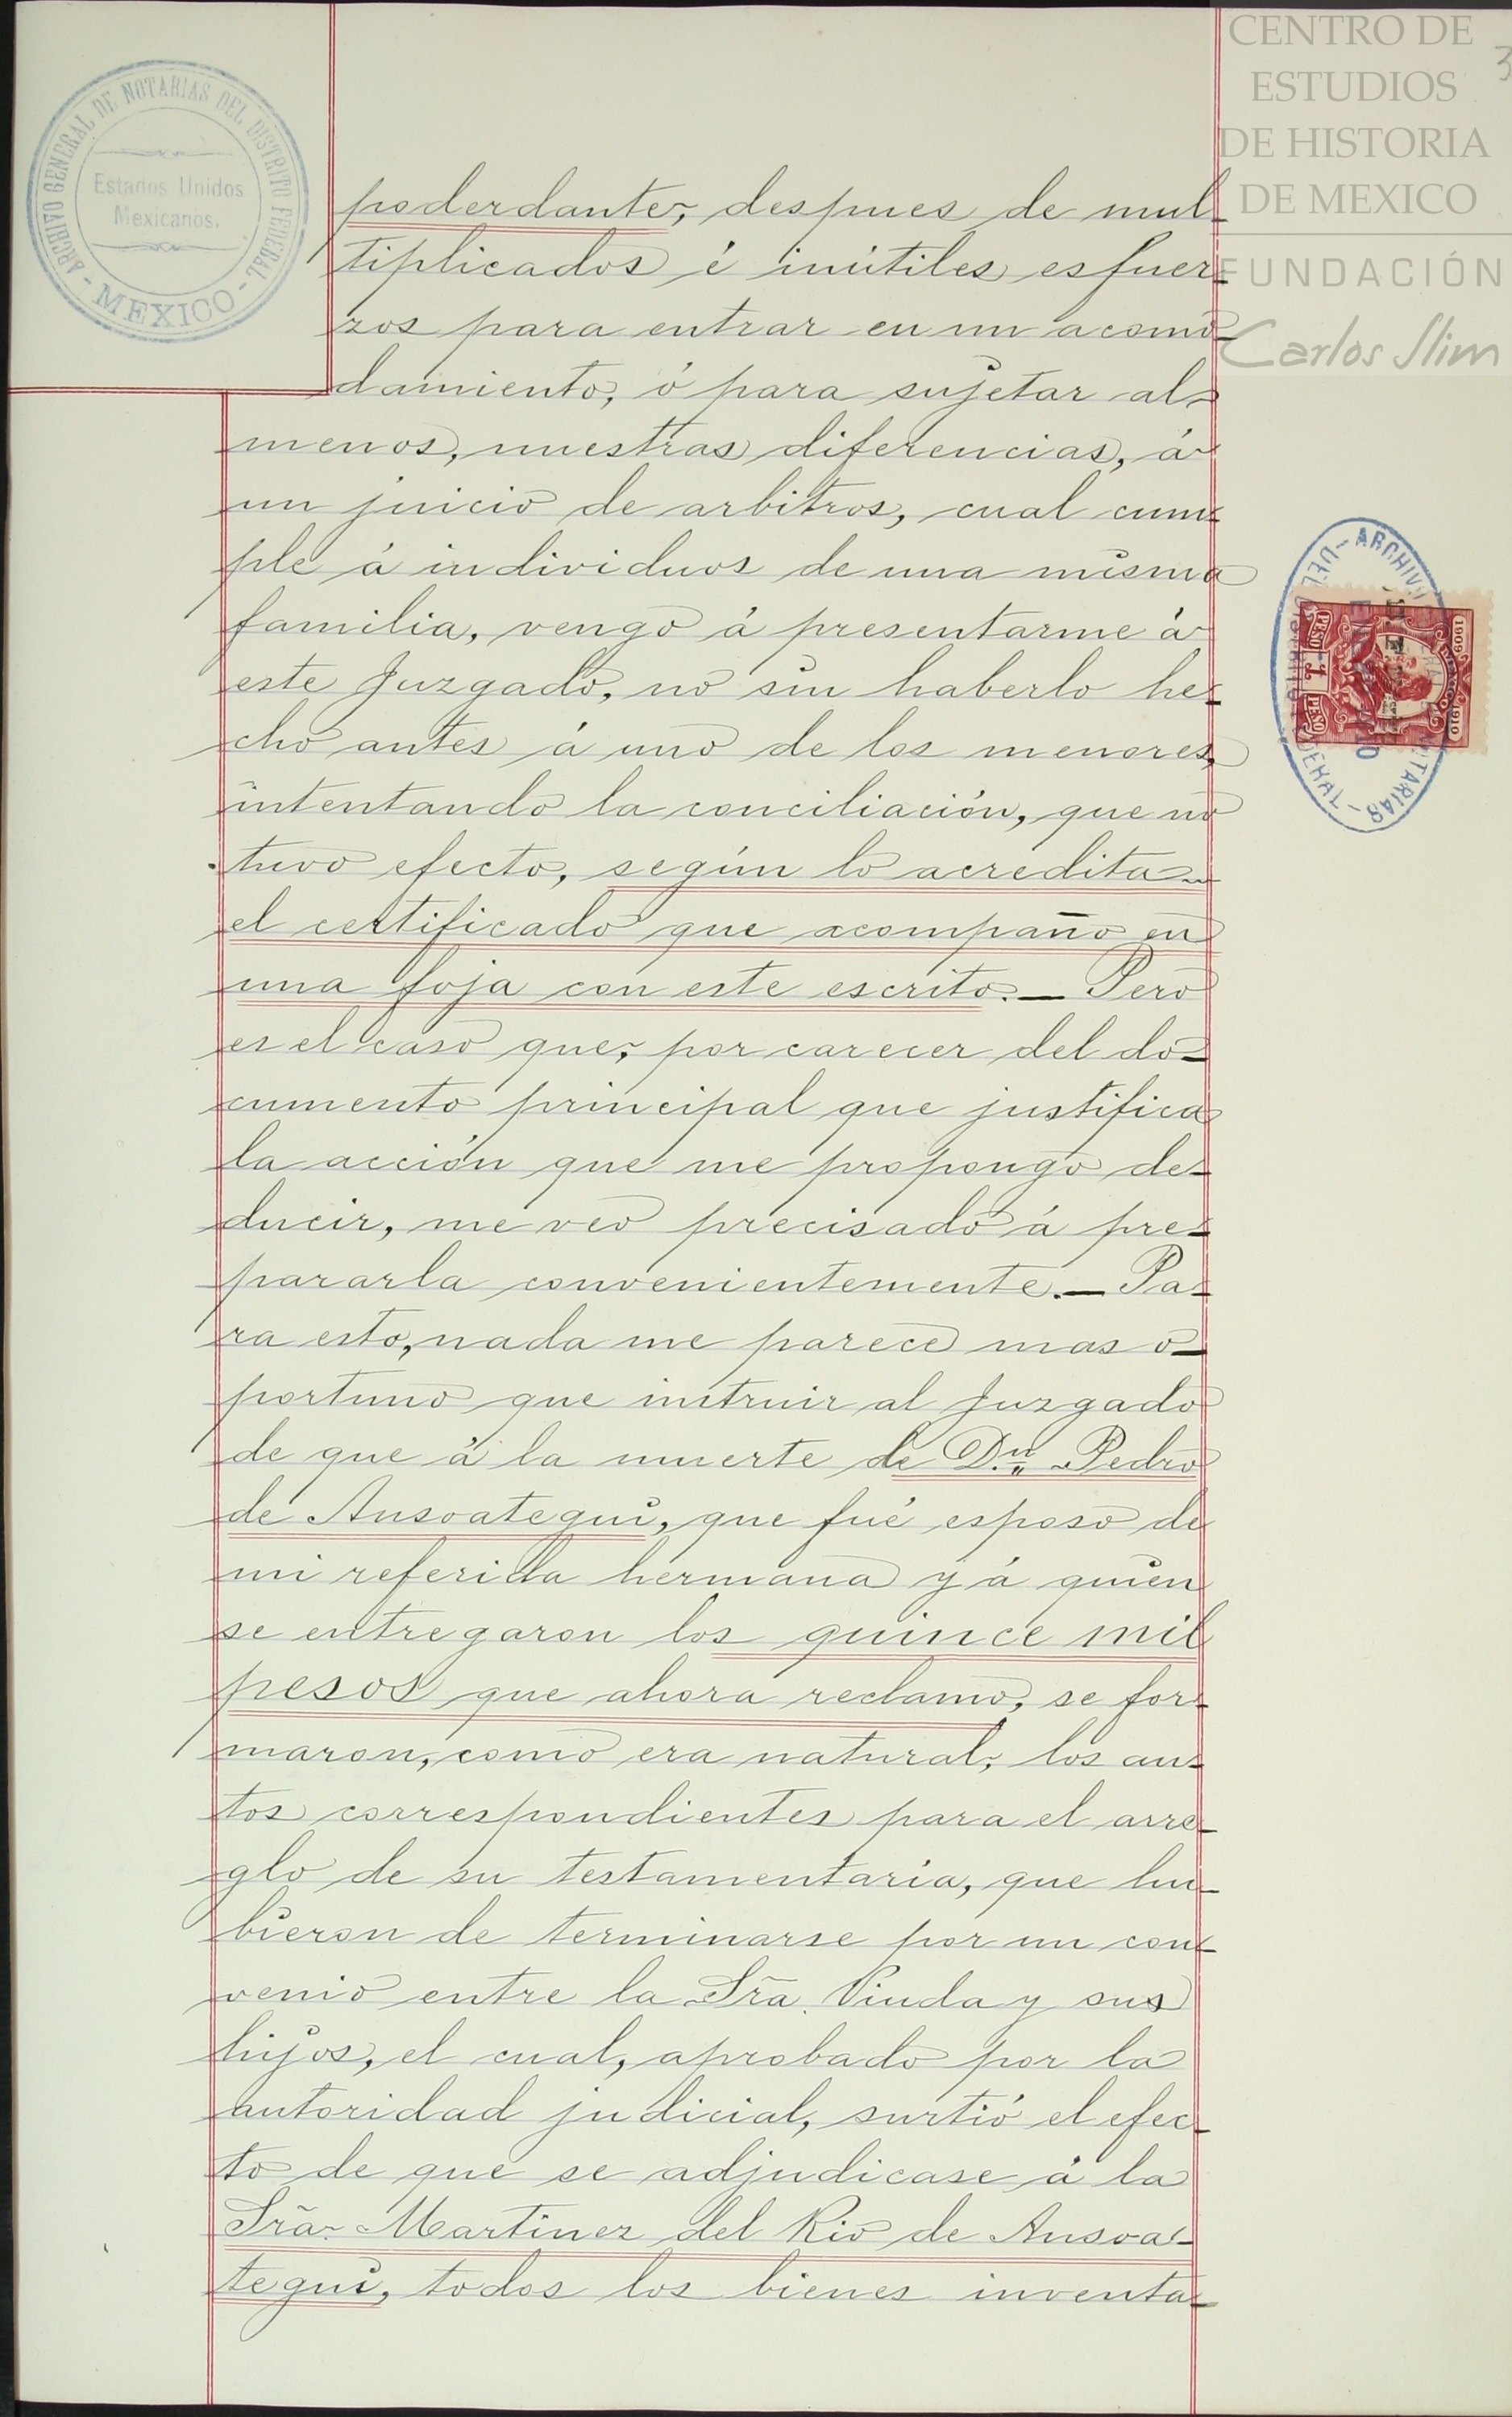 CENTRO DE
ESTUDIOS
DE HISTORIA
DE MEXICO
FUNDACIÓN
Carlos Slim
3
ARCHIVO GENERAL DE NOTARIAS DEL DISTRITO FEDERAL
- MEXICO -
Estados Unidos
Mexicanos.
poderdante, despues de mul-
tiplicados é inútiles esfuer-
zos para entrar en un acomo-
damiento, ó para sujetar al
menos, nuestras diferencias, á
un juicio de arbitros, cual cum-
ple á individuos de una misma
familia, vengo á presentarme á
este Juzgado, no sin haberlo he-
cho antes á uno de los menores,
intentando la conciliación, que no
tuvo efecto, según lo acredita
el certificado que acompaño en
una foja con este escrito.— Pero
es el caso que, por carecer del do-
cumento principal que justifica
la acción que me propongo de-
ducir, me veo precisado á pre-
pararla convenientemente.— Pa-
ra esto, nada me parece mas o-
portuno que instruir al Juzgado
de que á la muerte de Dn. Pedro
de Ansoategui, que fué esposo de
mi referida hermana y á quien
se entregaron los quince mil
pesos que ahora reclamo, se for-
maron, como era natural, los au-
tos correspondientes para el arre-
glo de su testamentaría, que hu-
bieron de terminarse por un con-
venio entre la Sra. Viuda y sus
hijos, el cual, aprobado por la
autoridad judicial, surtió el efec-
to de que se adjudicase á la
Sra. Martinez del Rio de Ansoa-
tegui, todos los bienes inventa-
1909
1910
PESO 1 PESO